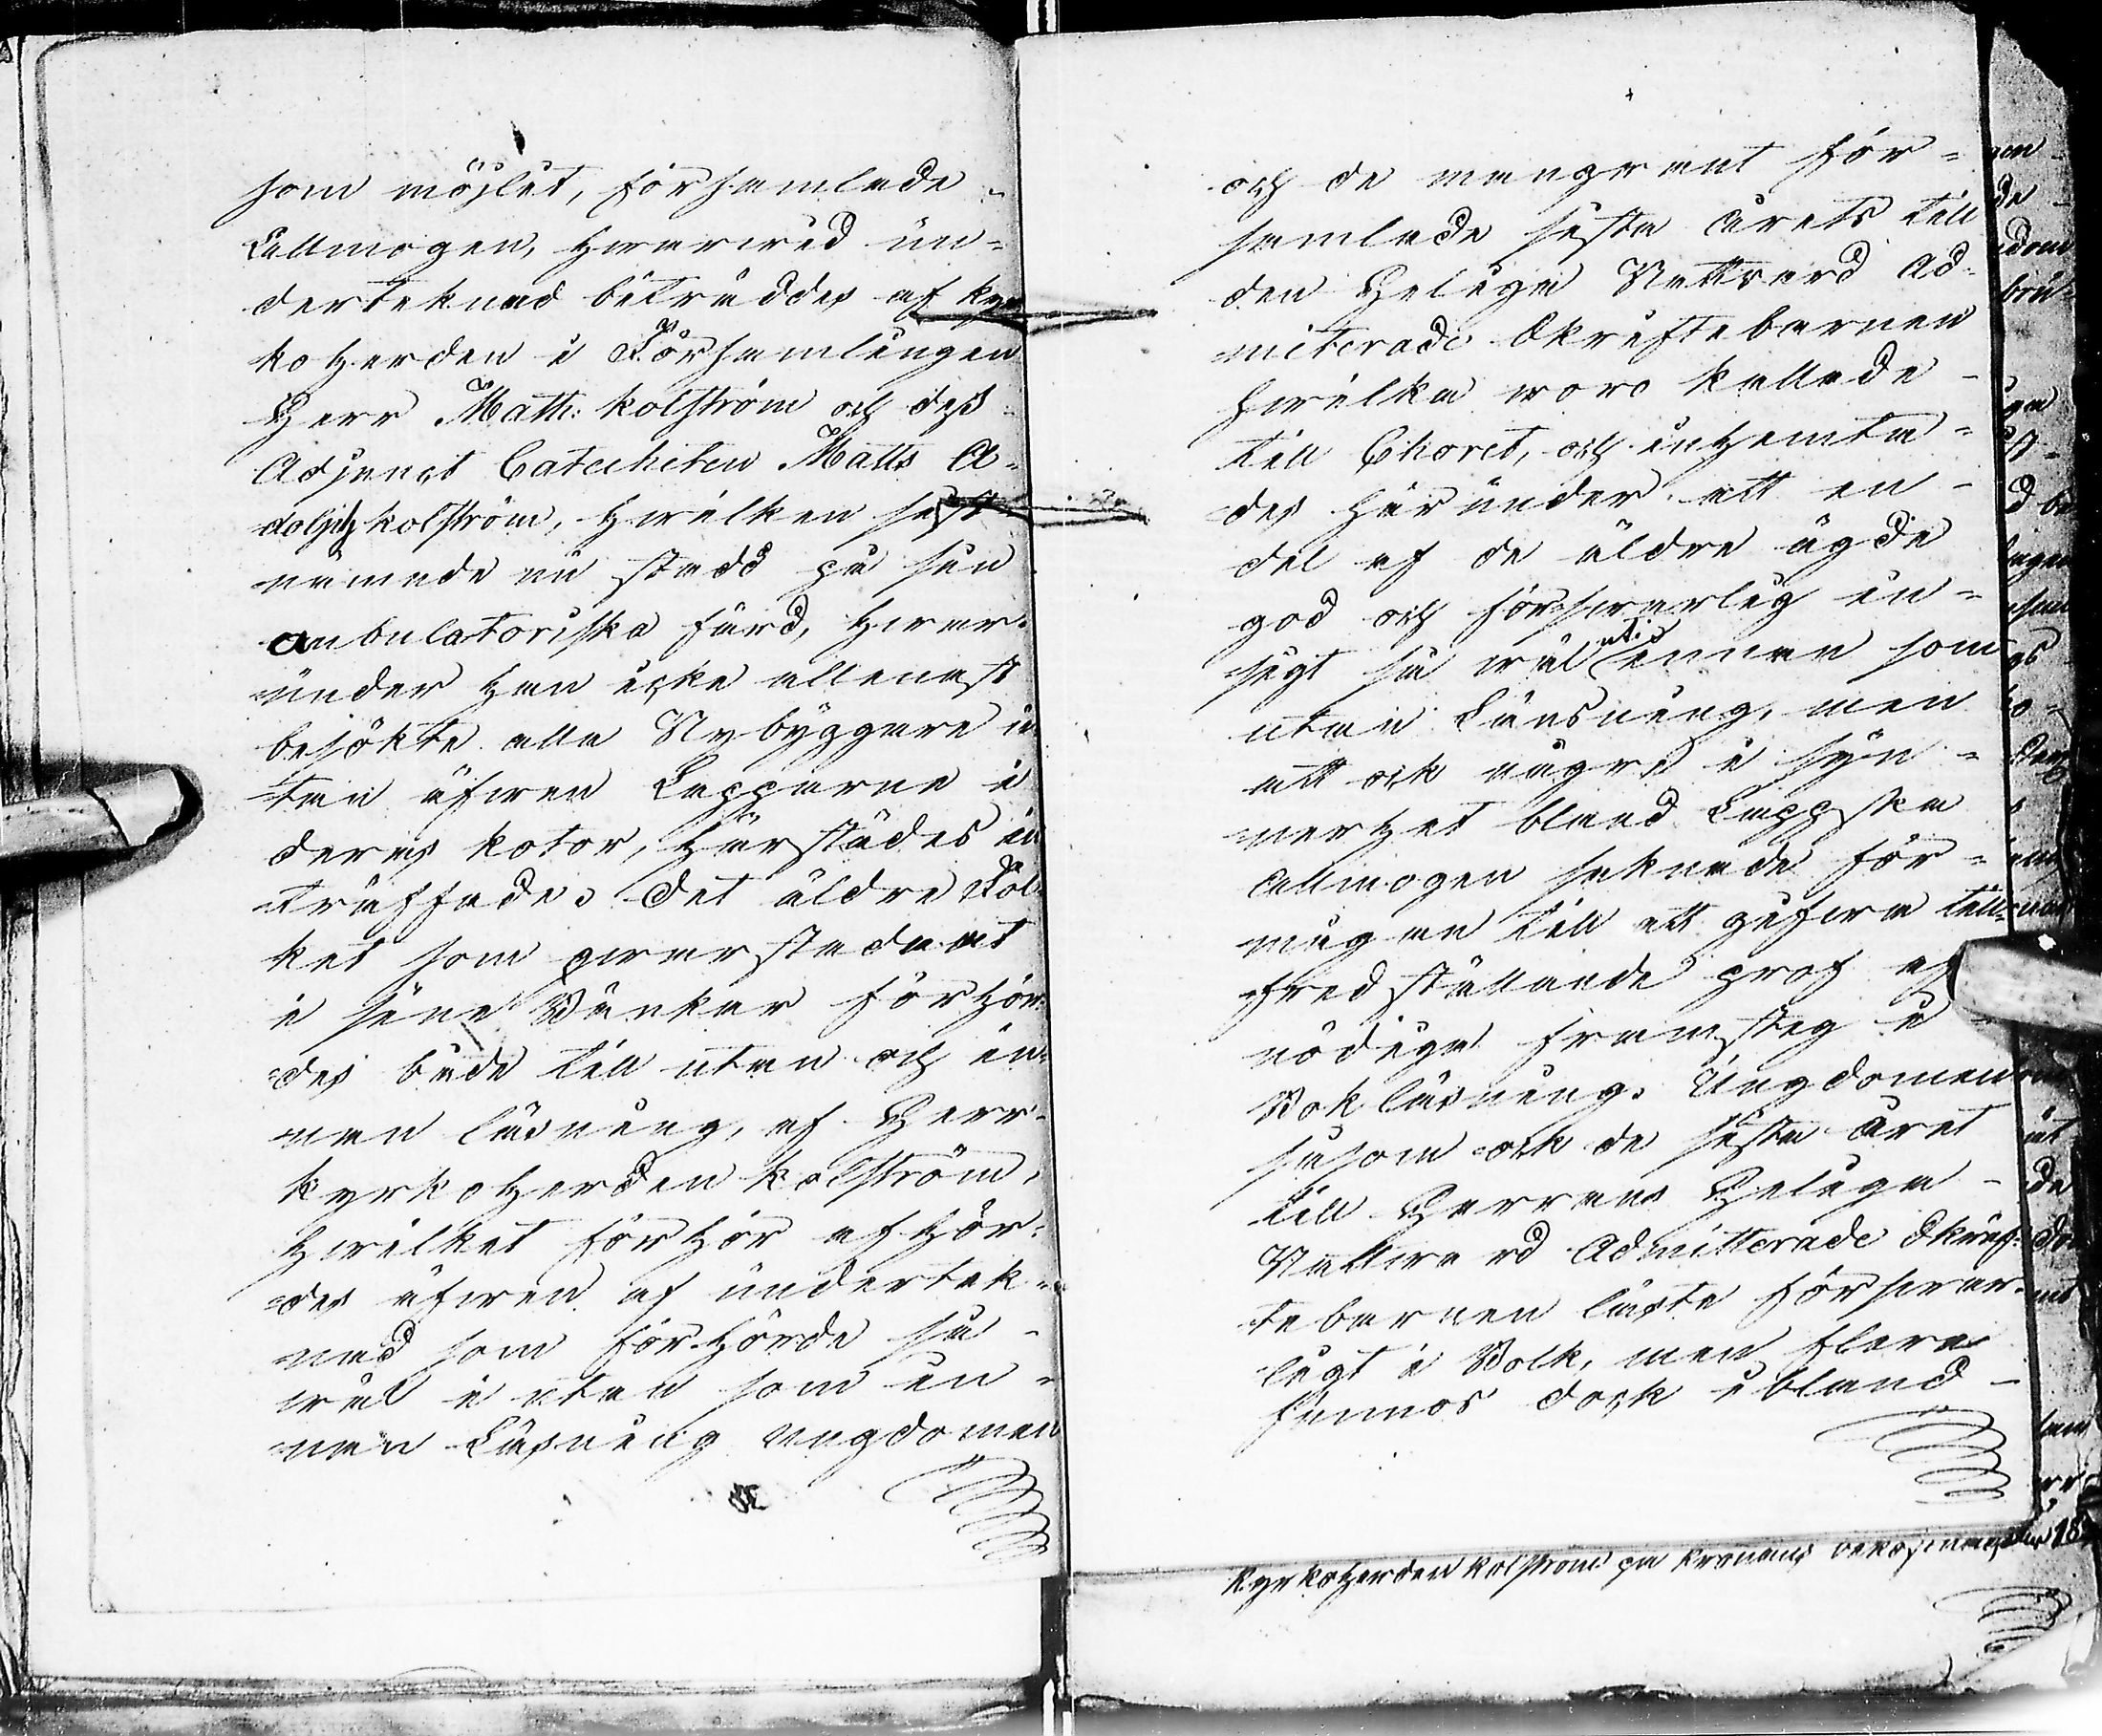 som möjlet, församlade
Lallmogen, hwarwid un-
derteknad biträddes af kyr
koherden i Församlingen
Herr Matth: Kolström och dess
Adjunct Catecheten Matts A-
dolph Kolström, hwilken sist-
nämnde nu stadd på sin
anbulatoriska färd, hwar-
under han icke allenast
besökte alla Nybyggare u
tan äfwen Lapparne i
deras kotor, härstädes in
träffade. Det äldre Fol
ket som qwarstadnat
i sina Bänkar förhör-
des både till utan och in-
nan läsning, af Herr
kyrkoherden Kolström,
hwilket förhör afhör-
des äfwen af undertek-
nad som förhörde så
wäl i utan som in-
nan Läsning ungdomen
och de mangrant för-
samlade sista årets till
den Heliga Nattvard ad-
miterade Skriftebarnen
hwilka woro kallade
till Choret, och inhemta-
des härunder att en
del af de äldre ägde
god och förswarlig in-
sigt så wäl uti innan som
utan Läsning, men
att ock någre i syn-
nerhet bland Lappska
allmogen saknade för-
mågan till att gifwa till-
fredställande prof af
nödiga framsteg i
Bokläsning. Ungdomen
såsom ock de sista året
till Herrans Heliga
Nattward Admitterade Skrif-
tebarnen läste förswar-
ligt i Bok, men flera
funnos dock ibland
kyrkoherden Kolström på kronans